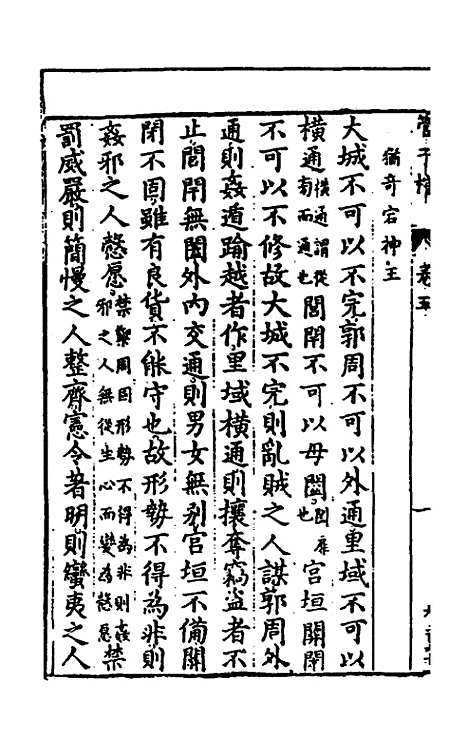 猶奇宕神王
大城不可以不完郭周不可以外通里域不可以
橫通橫通謂從旁而通也閭閈不可以毋闔闔扉也宮垣關閉
不可以不修故大城不完則亂賊之人謀郭周外
通則姦遁踰越者作里域橫通則攘奪竊盜者不
止閭閈無闔外內交通則男女無别宮垣不備關
閉不固雖有良貨不能守也故形勢不得為非則
姦邪之人慤愿禁禦周固形勢不得為非則姦邪之人無從生心而變為慤愿禁
罰威嚴則簡慢之人整齊憲令著明則蠻夷之人